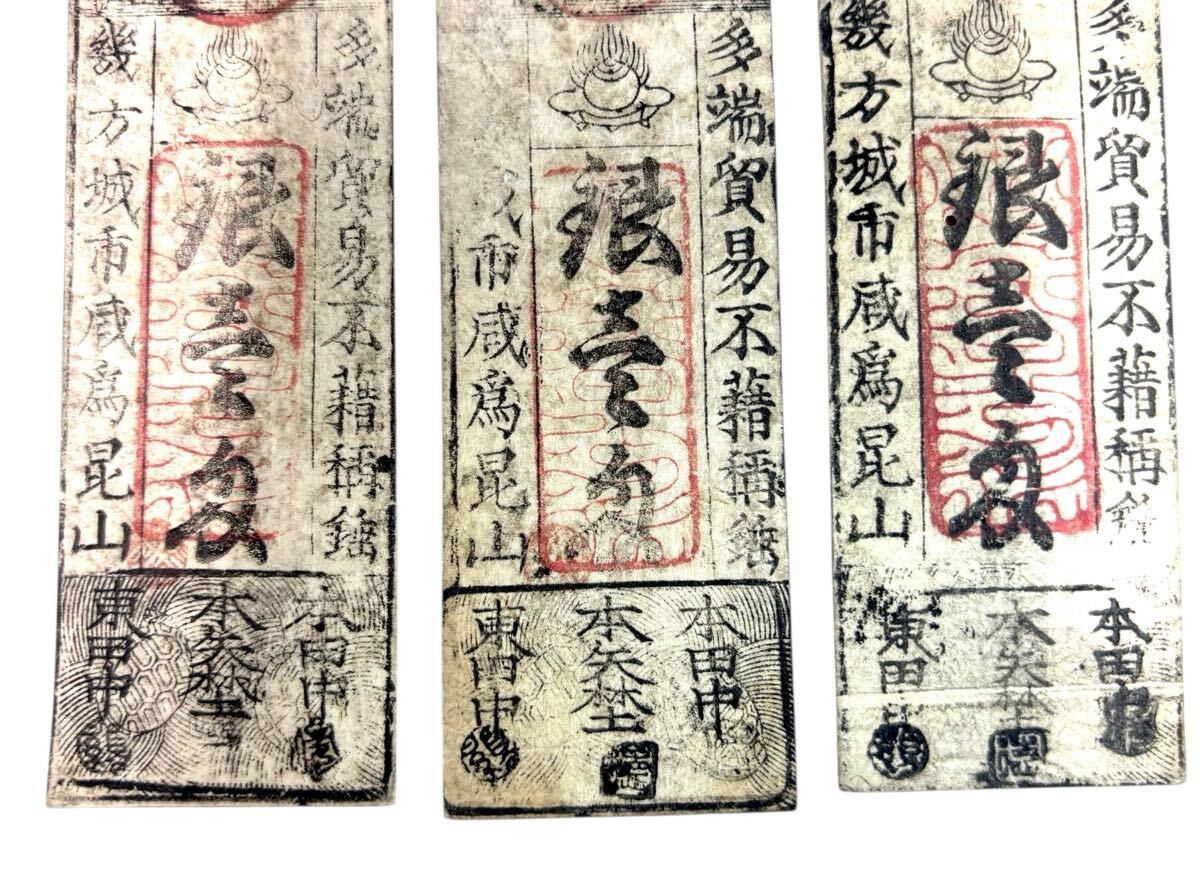 多端貿易不藉稱錘
銀壹匁
幾方城市咸爲昆山
本田中
本矢埜
東田中
多端貿易不藉稱錘
銀壹匁
市咸爲昆山
本田中
本矢埜
東田中
多端貿易不藉稱錘
銀壹匁
幾方城市咸爲昆山
本田中
本矢埜
東田中